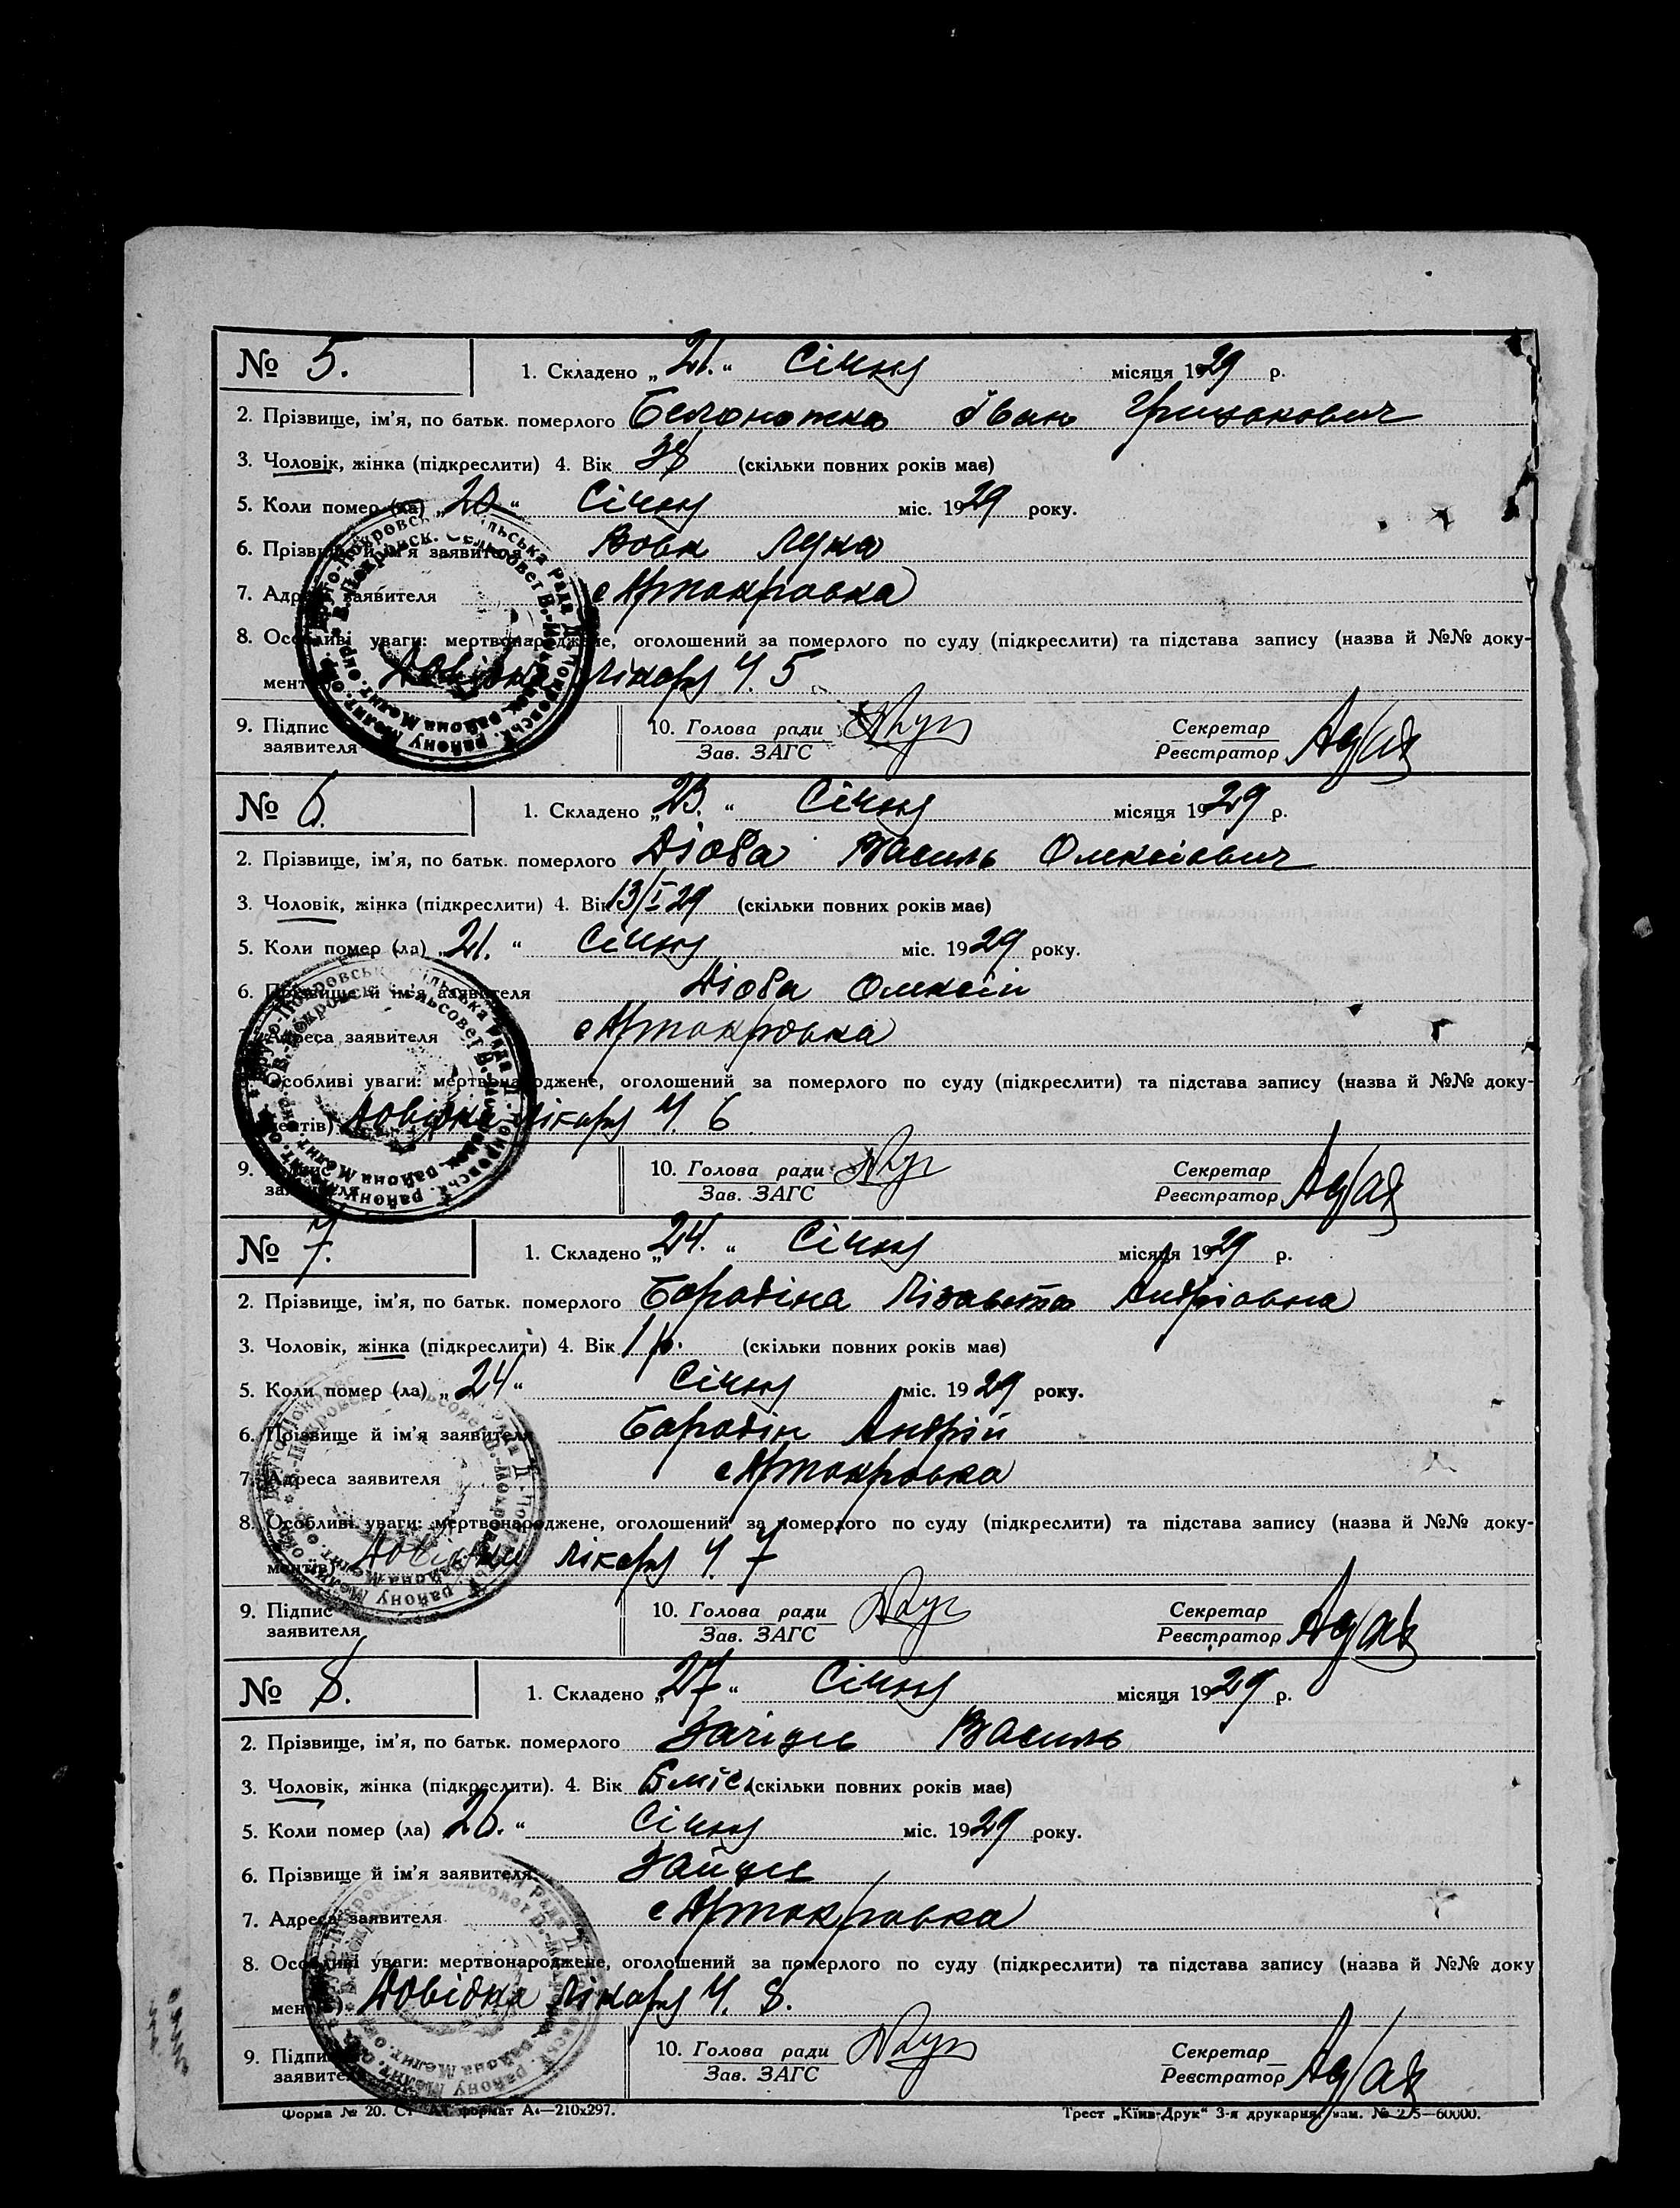 № 5. 1. Складено „21.“ Січня місяця 1929 р.
2. Прізвище, ім'я, по батьк. померлого Белоножка Іван
3. Чоловік, жінка (підкреслити) 4. Вік 38 (скільки повних років має)
5. Коли помер (ла) „20“ Січня міс. 1929 року.
6. Прізвище й ім'я заявителя Вовк Лука
7. Адреса заявителя
8. Особливі уваги: мертвонароджене, оголошений за померлого по суду (підкреслити) та підстава запису (назва й №№ доку-
ментів) Довідка лікаря Ч. 5
9. Підпис заявителя 10. Голова ради Секретар
Зав. ЗАГС Реєстратор
№ 6. 1. Складено „23.“ Січня місяця 1929 р.
2. Прізвище, ім'я, по батьк. померлого Дзюба Василь Олексіович
3. Чоловік, жінка (підкреслити) 4. Вік 13/I 29 (скільки повних років має)
5. Коли помер (ла) „21.“ Січня міс. 1929 року.
6. Прізвище й ім'я заявителя Дзюба Олексій
7. Адреса заявителя
8. Особливі уваги: мертвонароджене, оголошений за померлого по суду (підкреслити) та підстава запису (назва й №№ доку-
ментів) Довідка лікаря Ч. 6
9. Підпис заявителя 10. Голова ради Секретар
Зав. ЗАГС Реєстратор
№ 7. 1. Складено „24.“ Січня місяця 1929 р.
2. Прізвище, ім'я, по батьк. померлого Бародіна Лізавета Андріовна
3. Чоловік, жінка (підкреслити) 4. Вік 1 р. (скільки повних років має)
5. Коли помер (ла) „24“ Січня міс. 1929 року.
6. Прізвище й ім'я заявителя Бародін Андрій
7. Адреса заявителя
8. Особливі уваги: мертвонароджене, оголошений за померлого по суду (підкреслити) та підстава запису (назва й №№ доку-
ментів) Довідка лікаря Ч. 7
9. Підпис заявителя 10. Голова ради Секретар
Зав. ЗАГС Реєстратор
№ 8. 1. Складено „27“ Січня місяця 1929 р.
2. Прізвище, ім'я, по батьк. померлого Василь
3. Чоловік, жінка (підкреслити). 4. Вік (скільки повних років має)
5. Коли помер (ла) „26.“ Січня міс. 1929 року.
6. Прізвище й ім'я заявителя
7. Адреса заявителя
8. Особливі уваги: мертвонароджене, оголошений за померлого по суду (підкреслити) та підстава запису (назва й №№ доку
ментів) Довідка лікаря Ч. 8.
9. Підпис заявителя 10. Голова ради Секретар
Зав. ЗАГС Реєстратор
Форма № 20. формат А4—210х297. Трест „Київ-Друк“ 3-я друкарня, зам. № 275—60000.